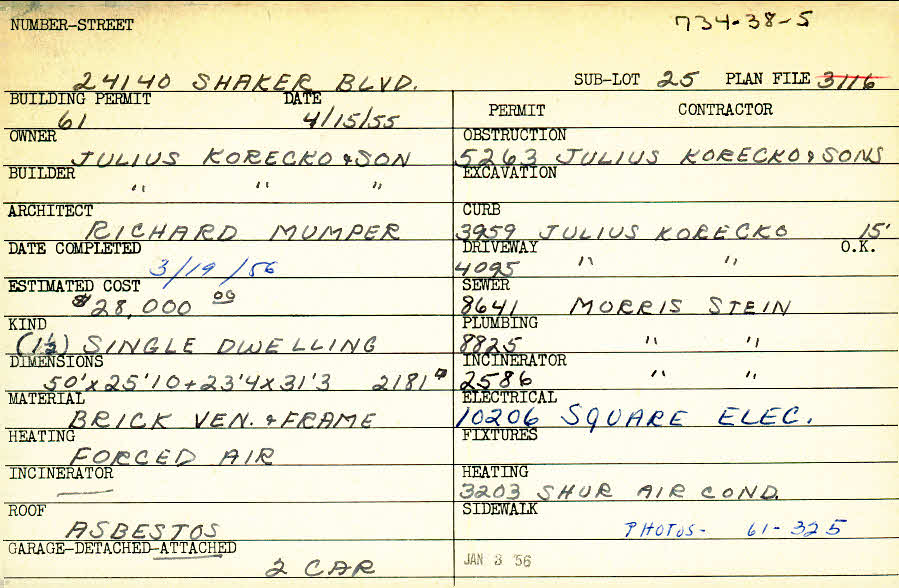 NUMBER-STREET
734-38-5
24140 SHAKER BLVD. SUB-LOT 25 PLAN FILE 3116
BUILDING PERMIT DATE
61 4/15/55
OWNER
JULIUS KORECKO & SON
BUILDER
" " "
ARCHITECT
RICHARD MUMPER
DATE COMPLETED
3/19/56
ESTIMATED COST
$28,000 00
KIND
(1½) SINGLE DWELLING
DIMENSIONS
50'x25'10+23'4x31'3 2181
MATERIAL
BRICK VEN. & FRAME
HEATING
FORCED AIR
INCINERATOR
—
ROOF
ASBESTOS
GARAGE-DETACHED-ATTACHED
2 CAR
PERMIT CONTRACTOR
OBSTRUCTION
5263 JULIUS KORECKO & SONS
EXCAVATION
CURB
3959 JULIUS KORECKO 15'
DRIVEWAY O.K.
4095 " "
SEWER
8641 MORRIS STEIN
PLUMBING
8825 " "
INCINERATOR
2586 " "
ELECTRICAL
10206 SQUARE ELEC.
FIXTURES
HEATING
3203 SHUR AIR COND.
SIDEWALK
PHOTOS- 61-325
JAN 3 '56